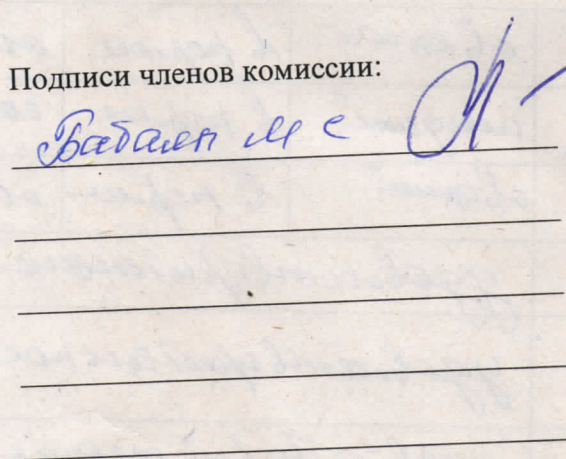 Подписи членов комиссии:
Бабаян М С